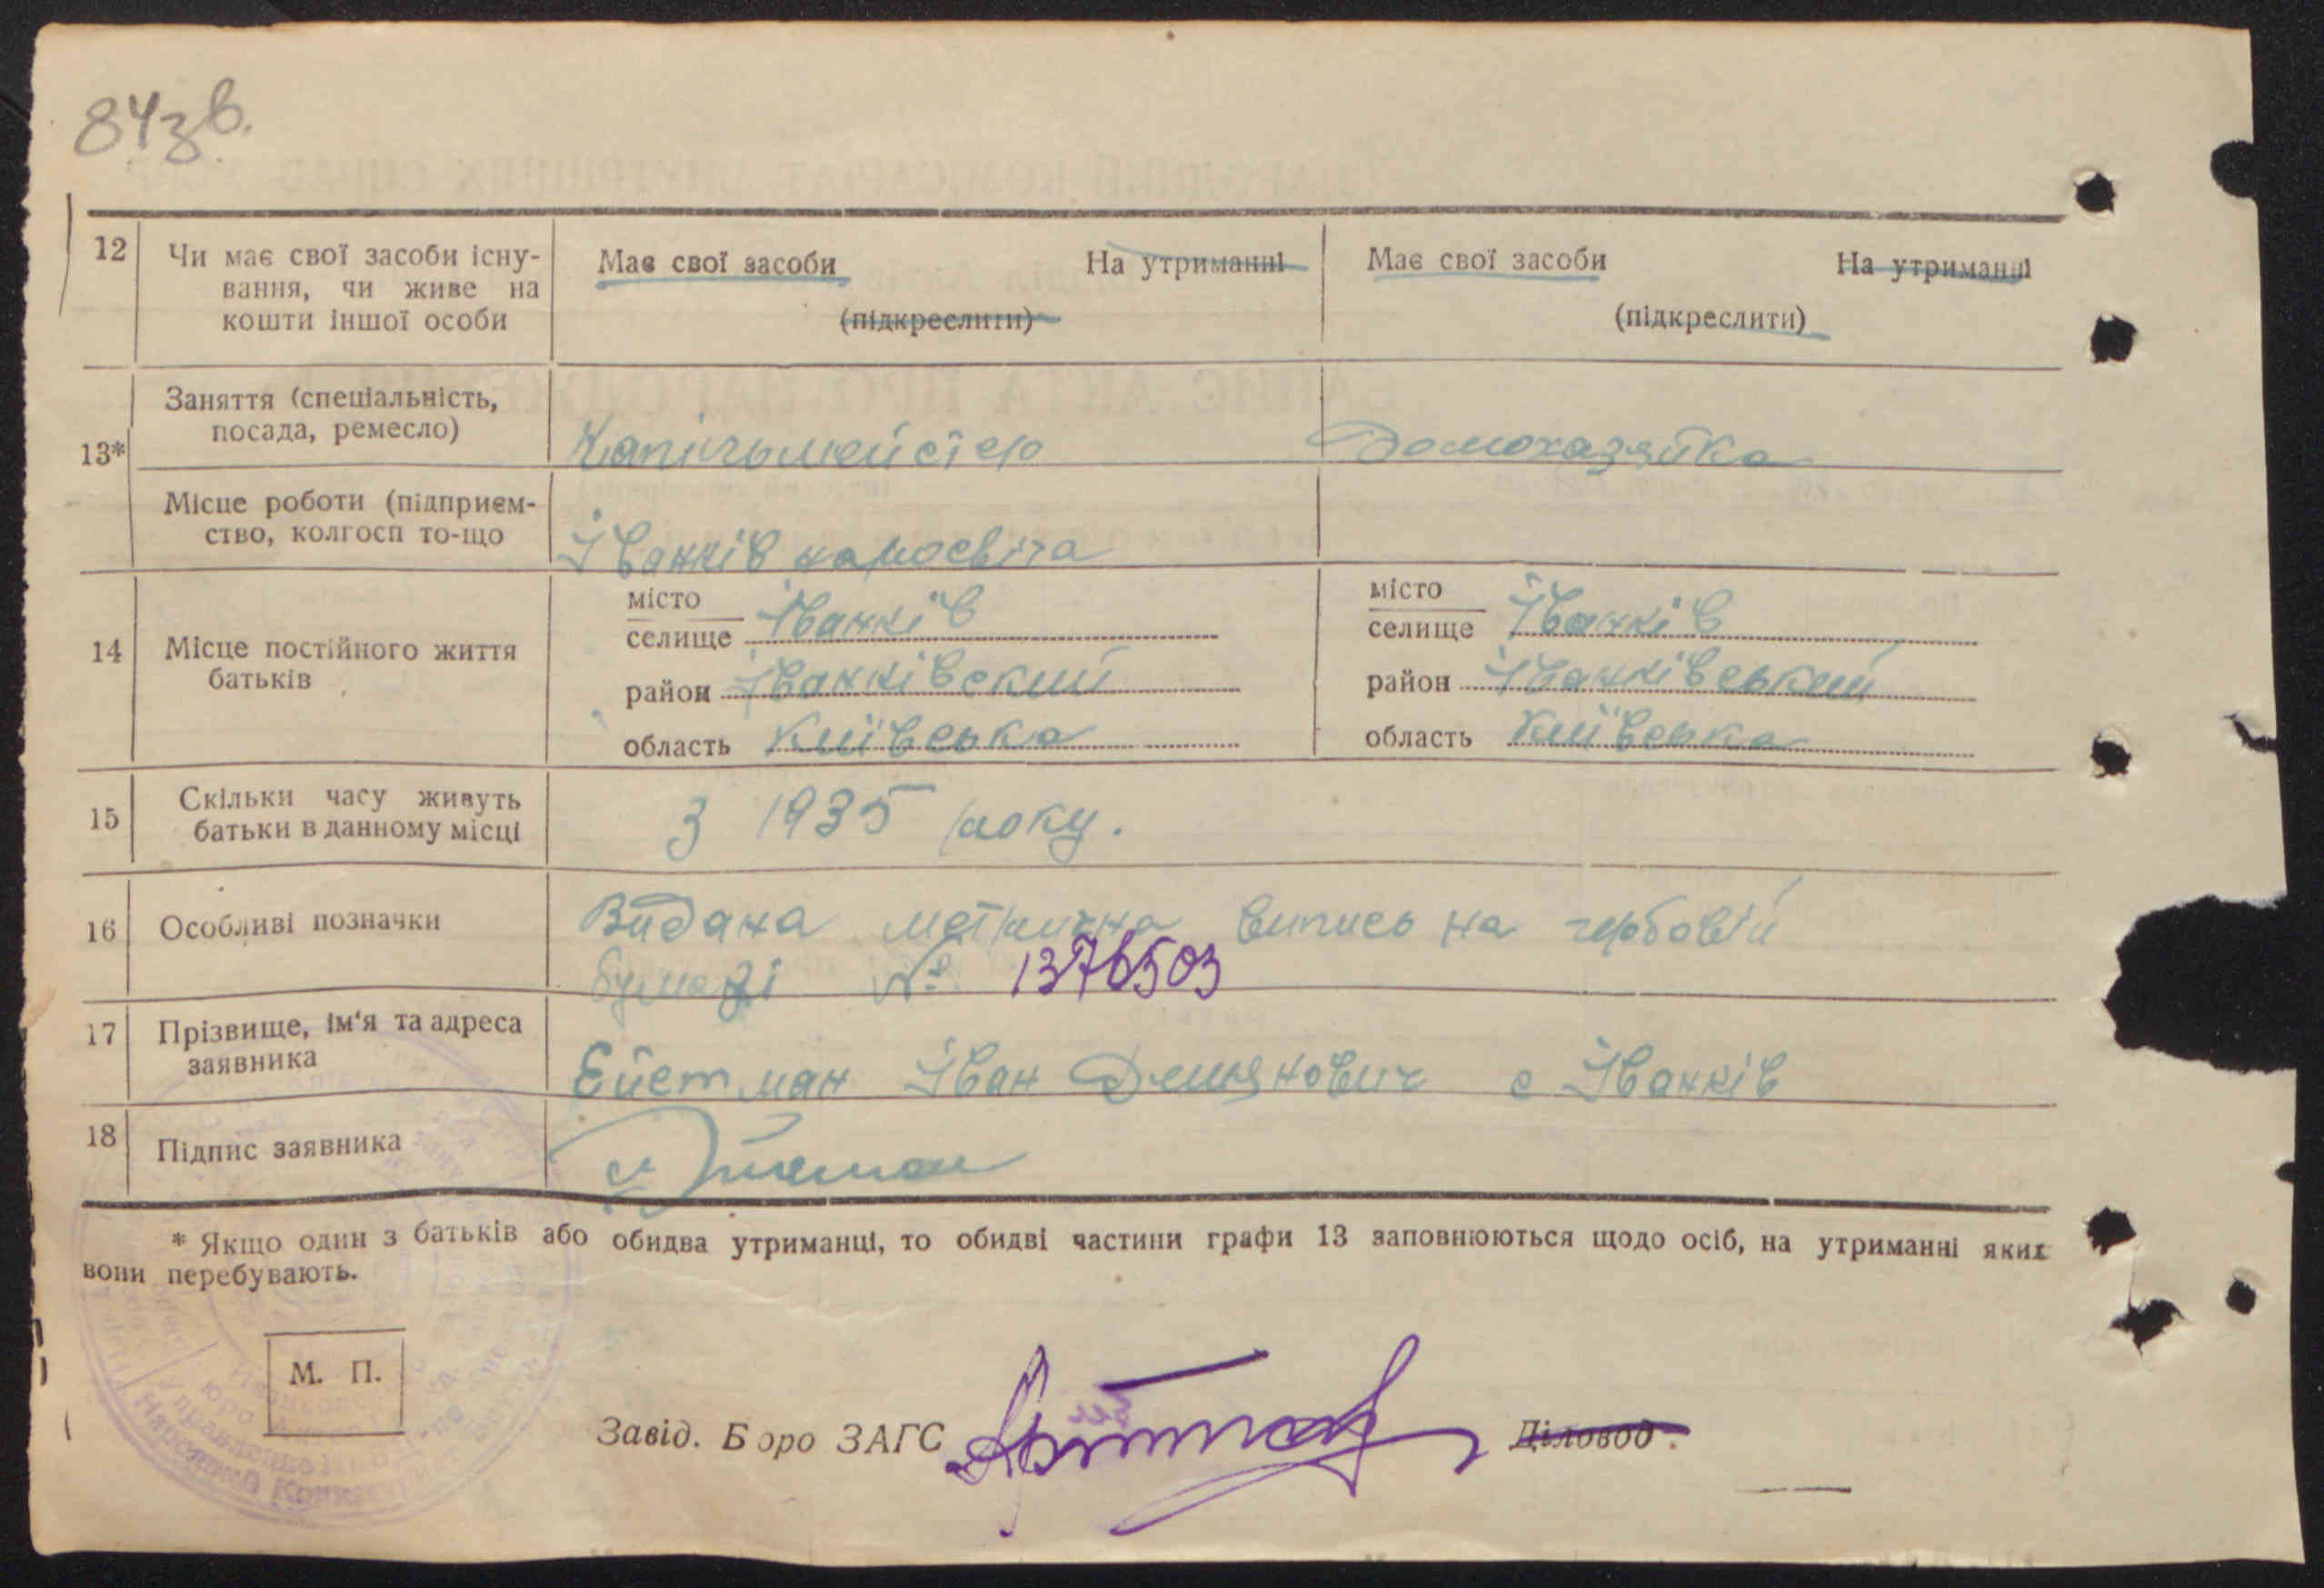 84зв.
12 Чи має свої засоби існу-
вання, чи живе на
кошти іншої особи
Має свої засоби На утриманні
(підкреслити)
Має свої засоби На утриманні
(підкреслити)
13*
Заняття (спеціальність,
посада, ремесло)
Капільмейстер
Домохазяйка
Місце роботи (підприєм-
ство, колгосп то-що
Іванків наросвіта
14 Місце постійного життя
батьків
місто
селище Іванків
район Іванківский
область Київська
місто
селище Іванків
район Іванківський
область Київська
15 Скільки часу живуть
батьки в данному місці
З 1935 року.
16 Особливі позначки
Видана метрична випись на гербовій
бумазі № 1376503
17 Прізвище, ім'я та адреса
заявника
Ейстман Іван Демянович с Іванків
18 Підпис заявника
* Якщо один з батьків або обидва утриманці, то обидві частини графи 13 заповнюються щодо осіб, на утриманні яких
вони перебувають.
М. П.
Завід. Бюро ЗАГС
Діловод.